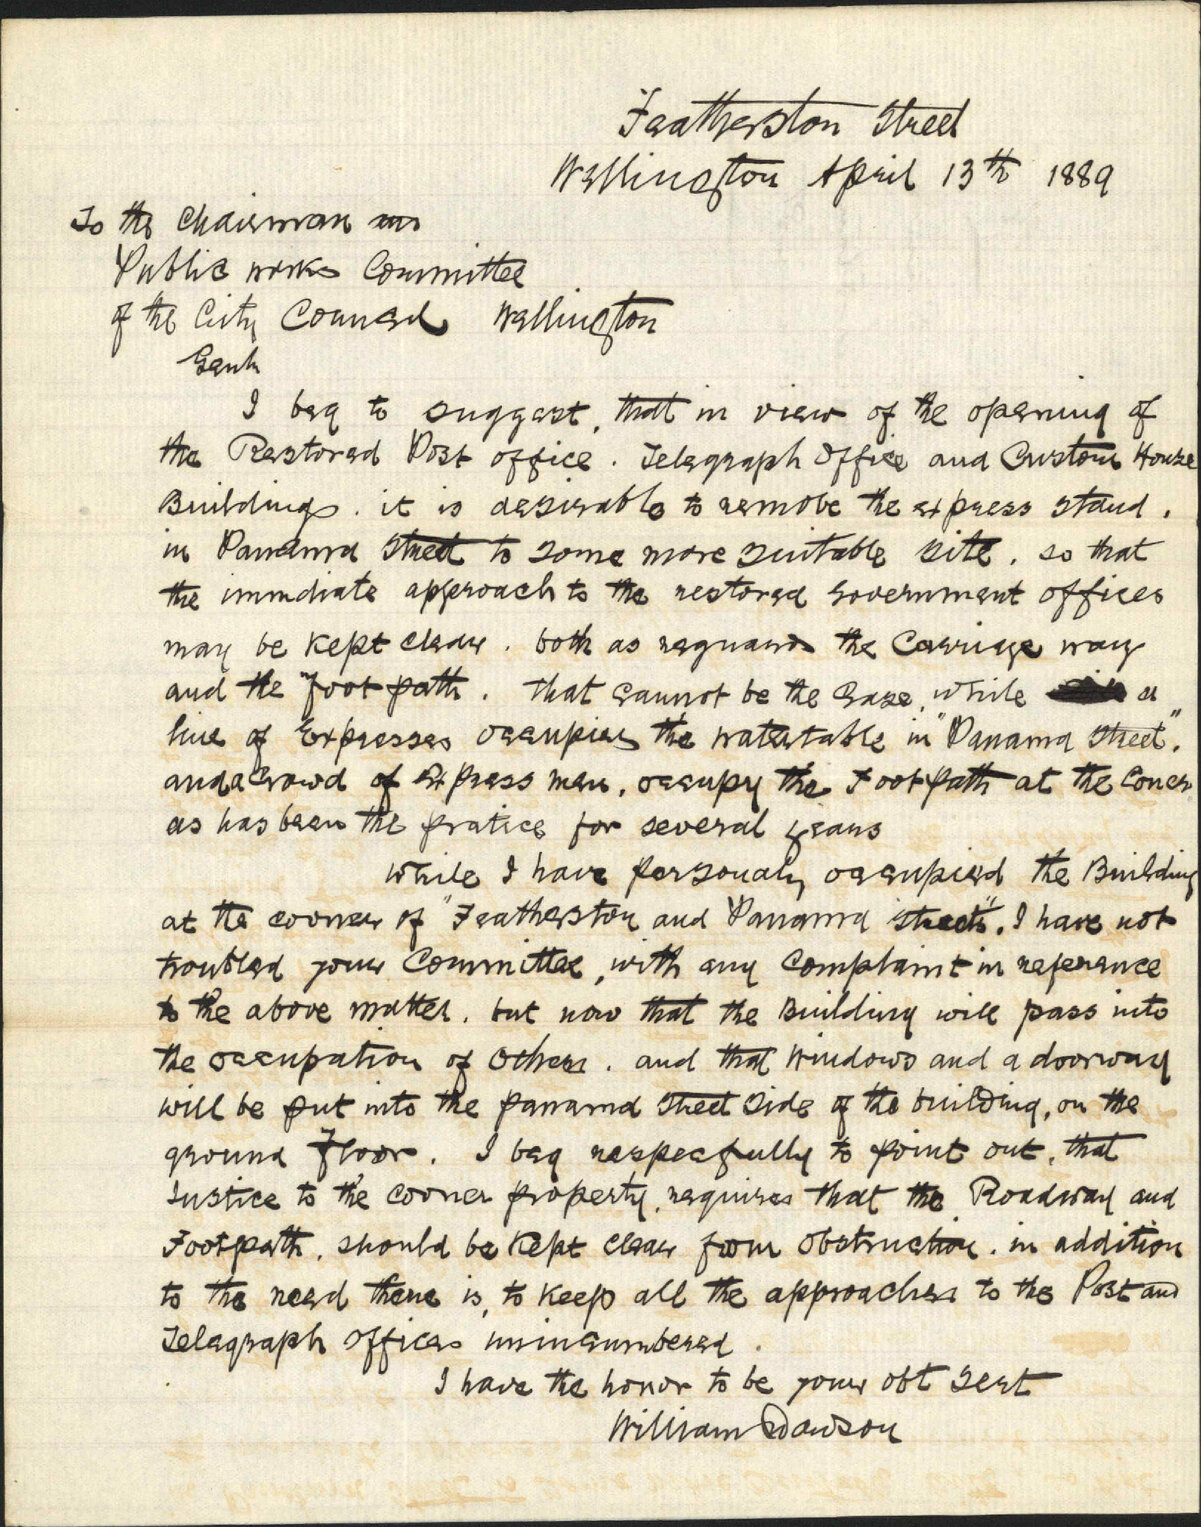 Featherston Street
Wellington April 13th 1889
To the Chairman
Public works Committee
of the City Council Wellington
Gentn
I beg to suggest, that in view of the opening of
the Restored Post office. Telegraph Office and Custom House
Buildings. it is desirable to remove the express stand.
in Panama Street to some more suitable site. so that
the immdiate approach to the restored Government offices
may be kept clear. both as reguards the Carriage way
and the Foot path. that cannot be the case, while a
line of Expresses occupies the watertable in "Panama Street".
and a crowd of Express men, occupy the Footpath at the Coner
as has been the pratice for several years
While I have personaly occupied the Building
at the corner of "Featherston and Panama Streets". I have not
troubled your Committee, with any Complaint in referance
to the above matter. but now that the Building will pass into
the occupation of others. and that windows and a doorway
will be put into the panama street side of the building, on the
ground Floor. I beg respecfully to point out, that
Justice to the corner property, requires that the Roadway and
Footpath, should be kept clear from obstruction. in addition
to the need there is, to keep all the approaches to the Post and
Telegraph offices unincumbered.
I have the honor to be your obt Sert
William Dawson